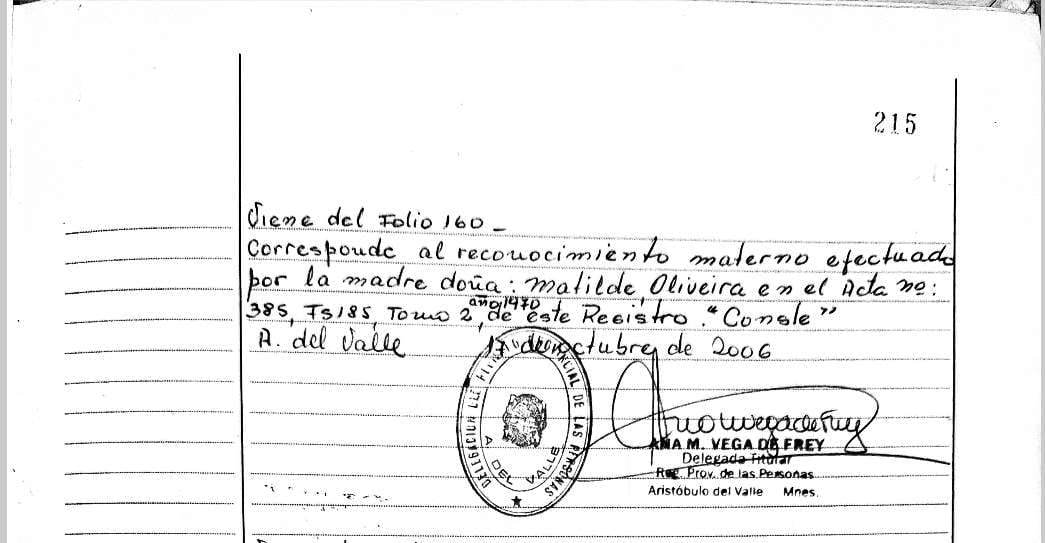 215
Viene del Folio 160 -
Corresponde al reconocimiento materno efectuado
por la madre doña: Matilde Oliveira en el Acta nº:
385, Fs 185, Tomo 2, año 1970 de este Registro. "Conste"
A. del Valle 17 de octubre de 2006
DELEGACION PROVINCIAL DE LAS PERSONAS
A DEL VALLE
ANA M. VEGA DE FREY
Delegada Titular
Reg. Prov. de las Personas
Aristóbulo del Valle Mnes.